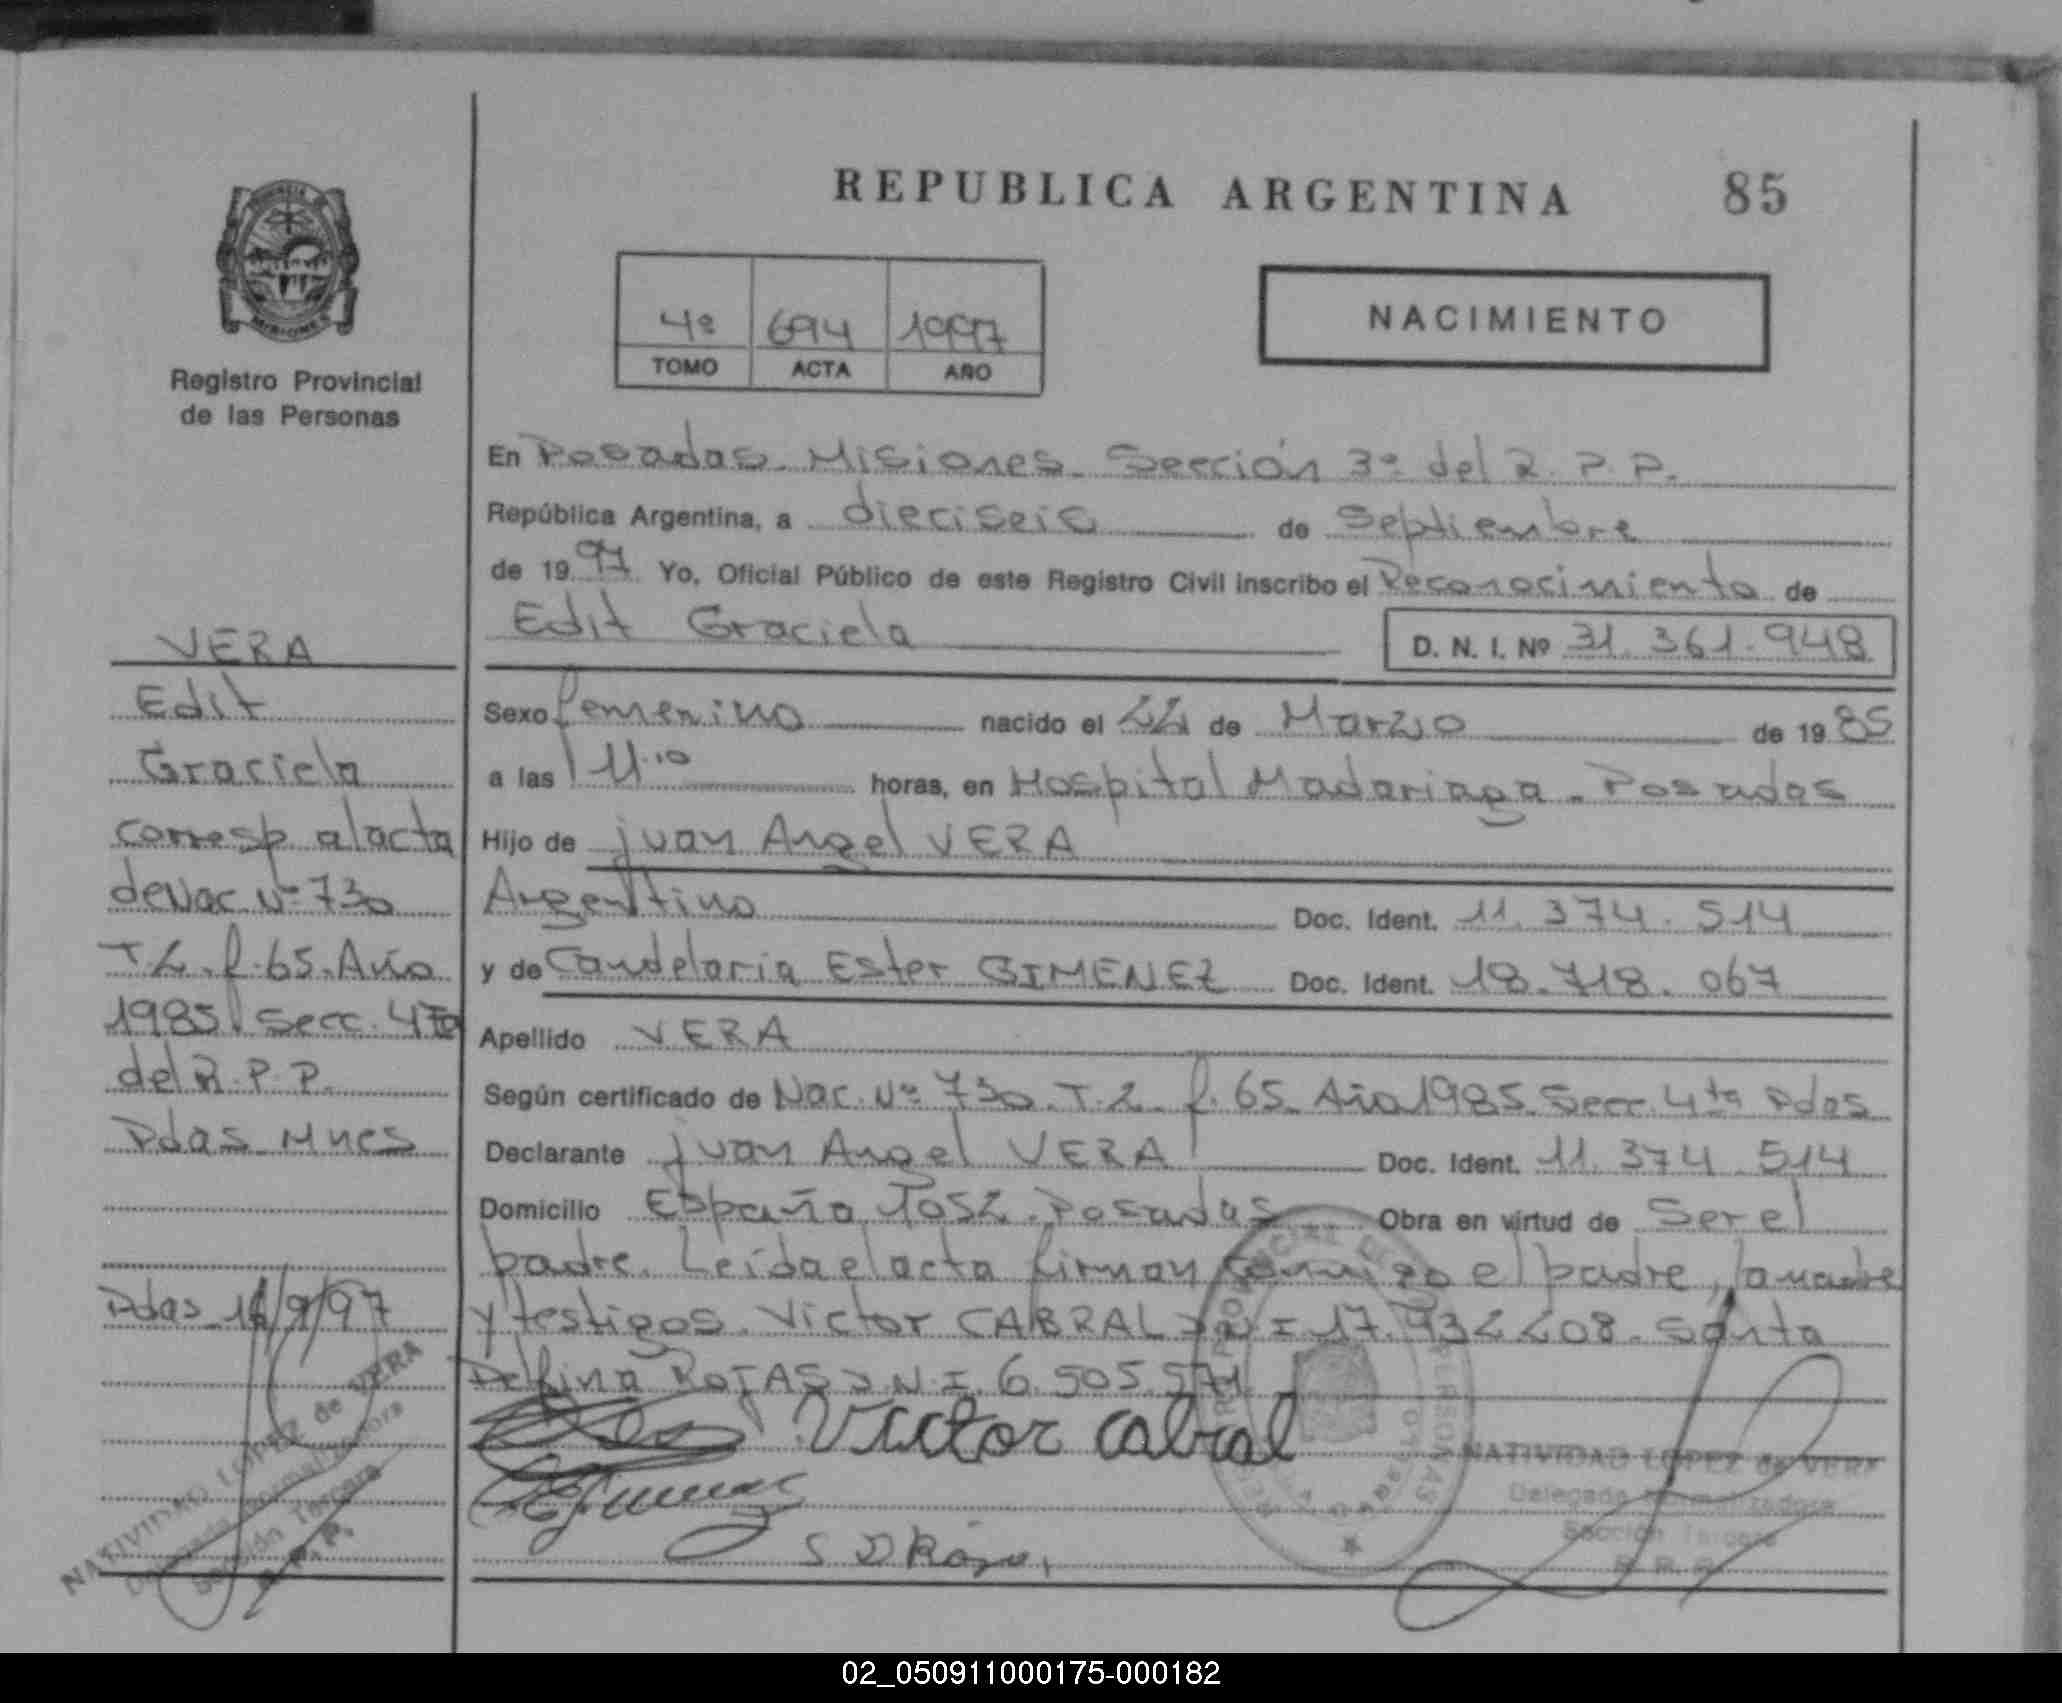 REPUBLICA ARGENTINA 85
PROVINCIA
MISIONES
Registro Provincial
de las Personas
4º 694 1997
TOMO ACTA AÑO
NACIMIENTO
En Posadas. Misiones. Sección 3º del R.P.P.
República Argentina, a dieciseis de Septiembre
de 1997 Yo, Oficial Público de este Registro Civil inscribo el Reconocimiento de
Edit Graciela D. N. I. Nº 31.361.948
Sexo femenino nacido el 22 de Marzo de 1985
a las 11.10 horas, en Hospital Madariaga - Posadas
Hijo de juan Angel VERA
Argentino Doc. Ident. 11.374.514
y de Candelaria Ester GIMENEZ Doc. Ident. 18.718.067
Apellido VERA
Según certificado de Nac. Nº 730. T.2. f. 65. Año 1985. Secc. 4ta Pdas
Declarante juan Angel VERA Doc. Ident. 11.374.514
Domicilio España 1052. Posadas Obra en virtud de Ser el
padre. Leída el acta firman conmigo el padre, la madre
y testigos. Victor CABRAL DNI 17.932208. Santa
Delfina ROJAS D.N.I. 6.505.571
Victor Cabral
S D Rojas
NATIVIDAD LOPEZ de VERA
Delegada Normalizadora
Sección Tercera
R. P. P.
VERA
Edit
Graciela
corresp al acta
de Nac Nº 730
T2. f. 65. Año
1985. Secc. 4ta
del R.P.P.
Pdas Mnes
Pdas 16/9/97
NATIVIDAD LOPEZ de VERA
Delegada Normalizadora
Sección Tercera
R.P.P.
02_050911000175-000182